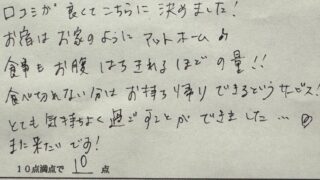 口コミが良くてこちらに決めました!
お宿はお家のようにアットホーム♪
食事もお腹はちきれるほどの量!!
食べ切れない分はお持ち帰りできるというサービス!
とても気持ちよく過ごすことができました…
また来たいです!
10点満点で 10 点